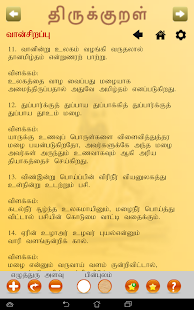 திருக்குறள்
வான்சிறப்பு
11. வானின்று உலகம் வழங்கி வருதலால்
தானமிழ்தம் என்றுணரற் பாற்று.
விளக்கம்:
உலகத்தை வாழ வைப்பது மழையாக
அமைந்திருப்பதால் அதுவே அமிழ்தம் எனப்படுகிறது.
12. துப்பார்க்குத் துப்பாய துப்பாக்கித் துப்பார்க்குத்
துப்பாய தூஉம் மழை.
விளக்கம்:
யாருக்கு உணவுப் பொருள்களை விளைவித்துத்தர
மழை பயன்படுகிறதோ, அவர்களுக்கே அந்த மழை
அவர்கள் அருந்தும் உணவாகவும் ஆகி அரிய
தியாகத்தைச் செய்கிறது.
13. விண்இன்று பொய்ப்பின் விரிநீர் வியனுலகத்து
உள்நின்று உடற்றும் பசி.
விளக்கம்:
கடல்நீர் சூழ்ந்த உலகமாயினும், மழைநீர் பொய்த்து
விட்டால் பசியின் கொடுமை வாட்டி வதைக்கும்.
14. ஏரின் உழாஅர் உழவர் புயலென்னும்
வாரி வளங்குன்றிக் கால்.
விளக்கம்:
எழுத்துரு அளவு
பின்புலம்